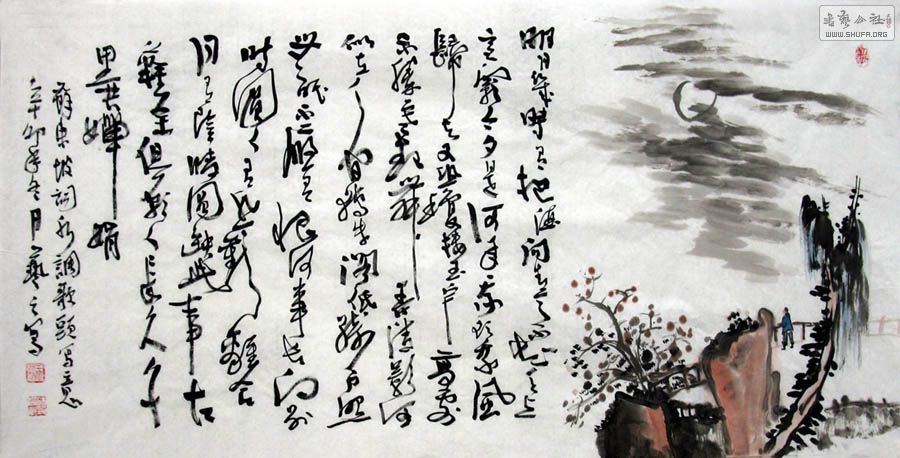 明月幾時有把酒問青天不知天上
宮闕今夕是何年我欲乘風
歸去又恐瓊樓玉宇高處
不勝寒起舞弄清影何
似在人間轉朱閣低綺戶照
無眠不應有恨何事長向別
時圓人有悲歡離合
月有陰晴圓缺此事古
難全但願人長久千
里共嬋娟
蘇東坡詞水調歌頭寫意
卯年月藝之寫
書藝公社
WWW.SHUFA.ORG